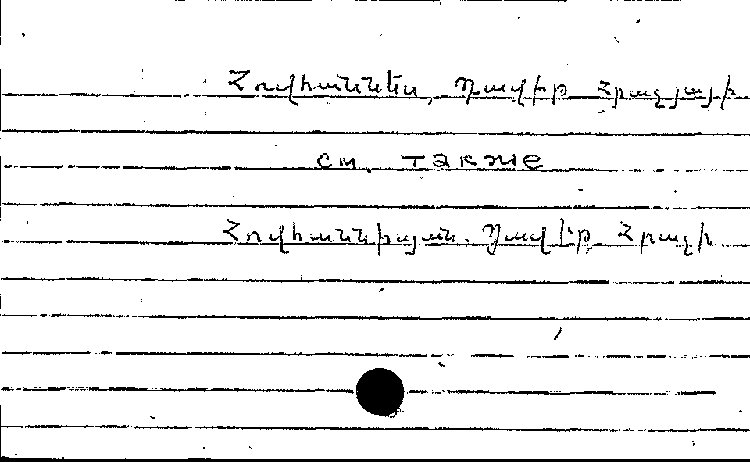 Հովհաննես, Դավիթ Հրաչյայի
см. также
Հովհաննիսյան. Դավիթ Հրաչի